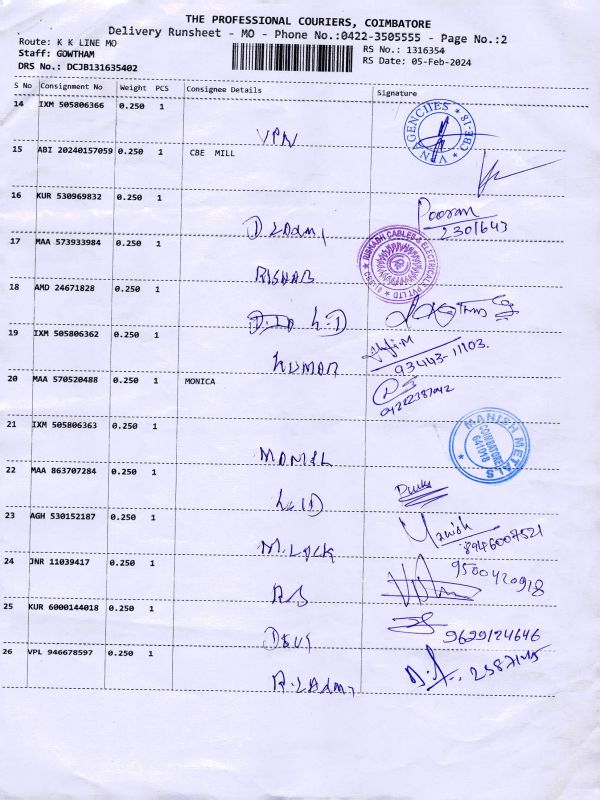 THE PROFESSIONAL COURIERS, COIMBATORE
Delivery Runsheet - MO - Phone No.:0422-3505555 - Page No.:2
Route: K K LINE MO
Staff: GOWTHAM
DRS No.: DCJB131635402
RS No.: 1316354
RS Date: 05-Feb-2024
S No Consignment No Weight PCS Consignee Details Signature
14 IXM 505806366 0.250 1
VPN
VN AGENCIIES CBE-18
15 ABI 20240157059 0.250 1 CBE MILL
16 KUR 530969832 0.250 1
Pooram
2301643
17 MAA 573933984 0.250 1
RISHAB
RISHABH CABLES & ELECTRICALS PVT LTD
18 AMD 24671828 0.250 1
19 IXM 505806362 0.250 1
KUMAR
93443-11103.
20 MAA 570520488 0.250 1 MONICA
21 IXM 505806363 0.250 1
MANISH METALS COIMBATORE 641018
22 MAA 863707284 0.250 1
23 AGH 530152187 0.250 1
M. Lock
Manish
8946007521
24 JNR 11039417 0.250 1
9500420918
25 KUR 6000144018 0.250 1
9629124646
26 VPL 946678597 0.250 1